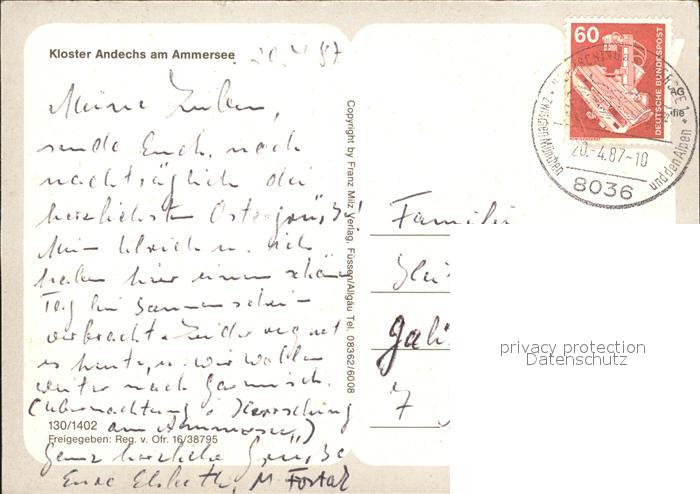 Kloster Andechs am Ammersee
20.4.87
Meine Lieben,
sende Euch, noch
nachträglich die
herzlichsten Ostergrüße!
Mein Ulrich u. ich
haben hier einen schönen
Tag bei Sonnenschein
verbracht. Leider regnet
es heute, u. wir wollen
weiter nach Garmisch.
(Übernachtung i. Herrsching
am Ammersee)
130/1402
Freigegeben: Reg. v. Ofr. 16/38795
Ganz herzliche Grüße
Eure Elsbeth,
Copyright by Franz Milz Verlag, Füssen/Allgäu Tel. 08362/6008
60
DEUTSCHE BUNDESPOST
zwischen München
und den Alpen
20.-4.87-10
8036
Familie
7
privacy protection
Datenschutz